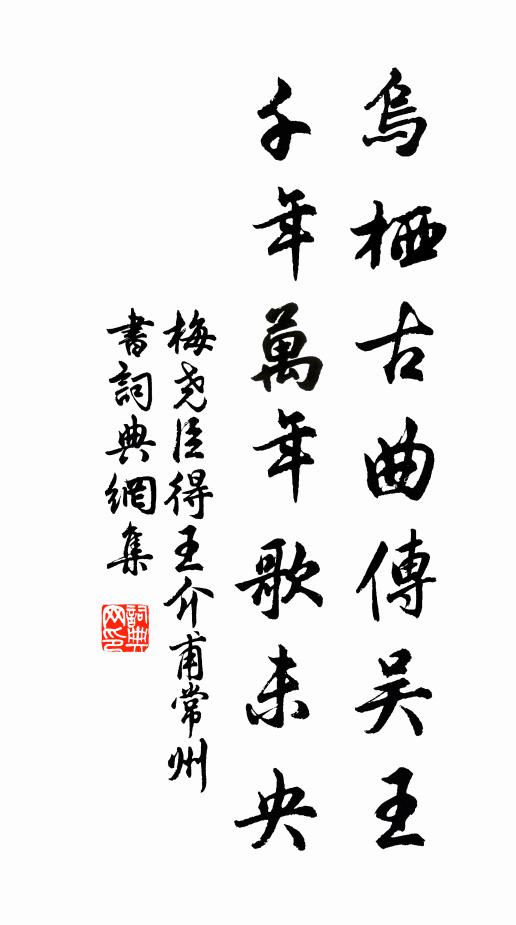 烏栖古曲傳吴王
千年萬年歌未央
梅尧臣得王介甫常州
書詞典網集
詞典网印